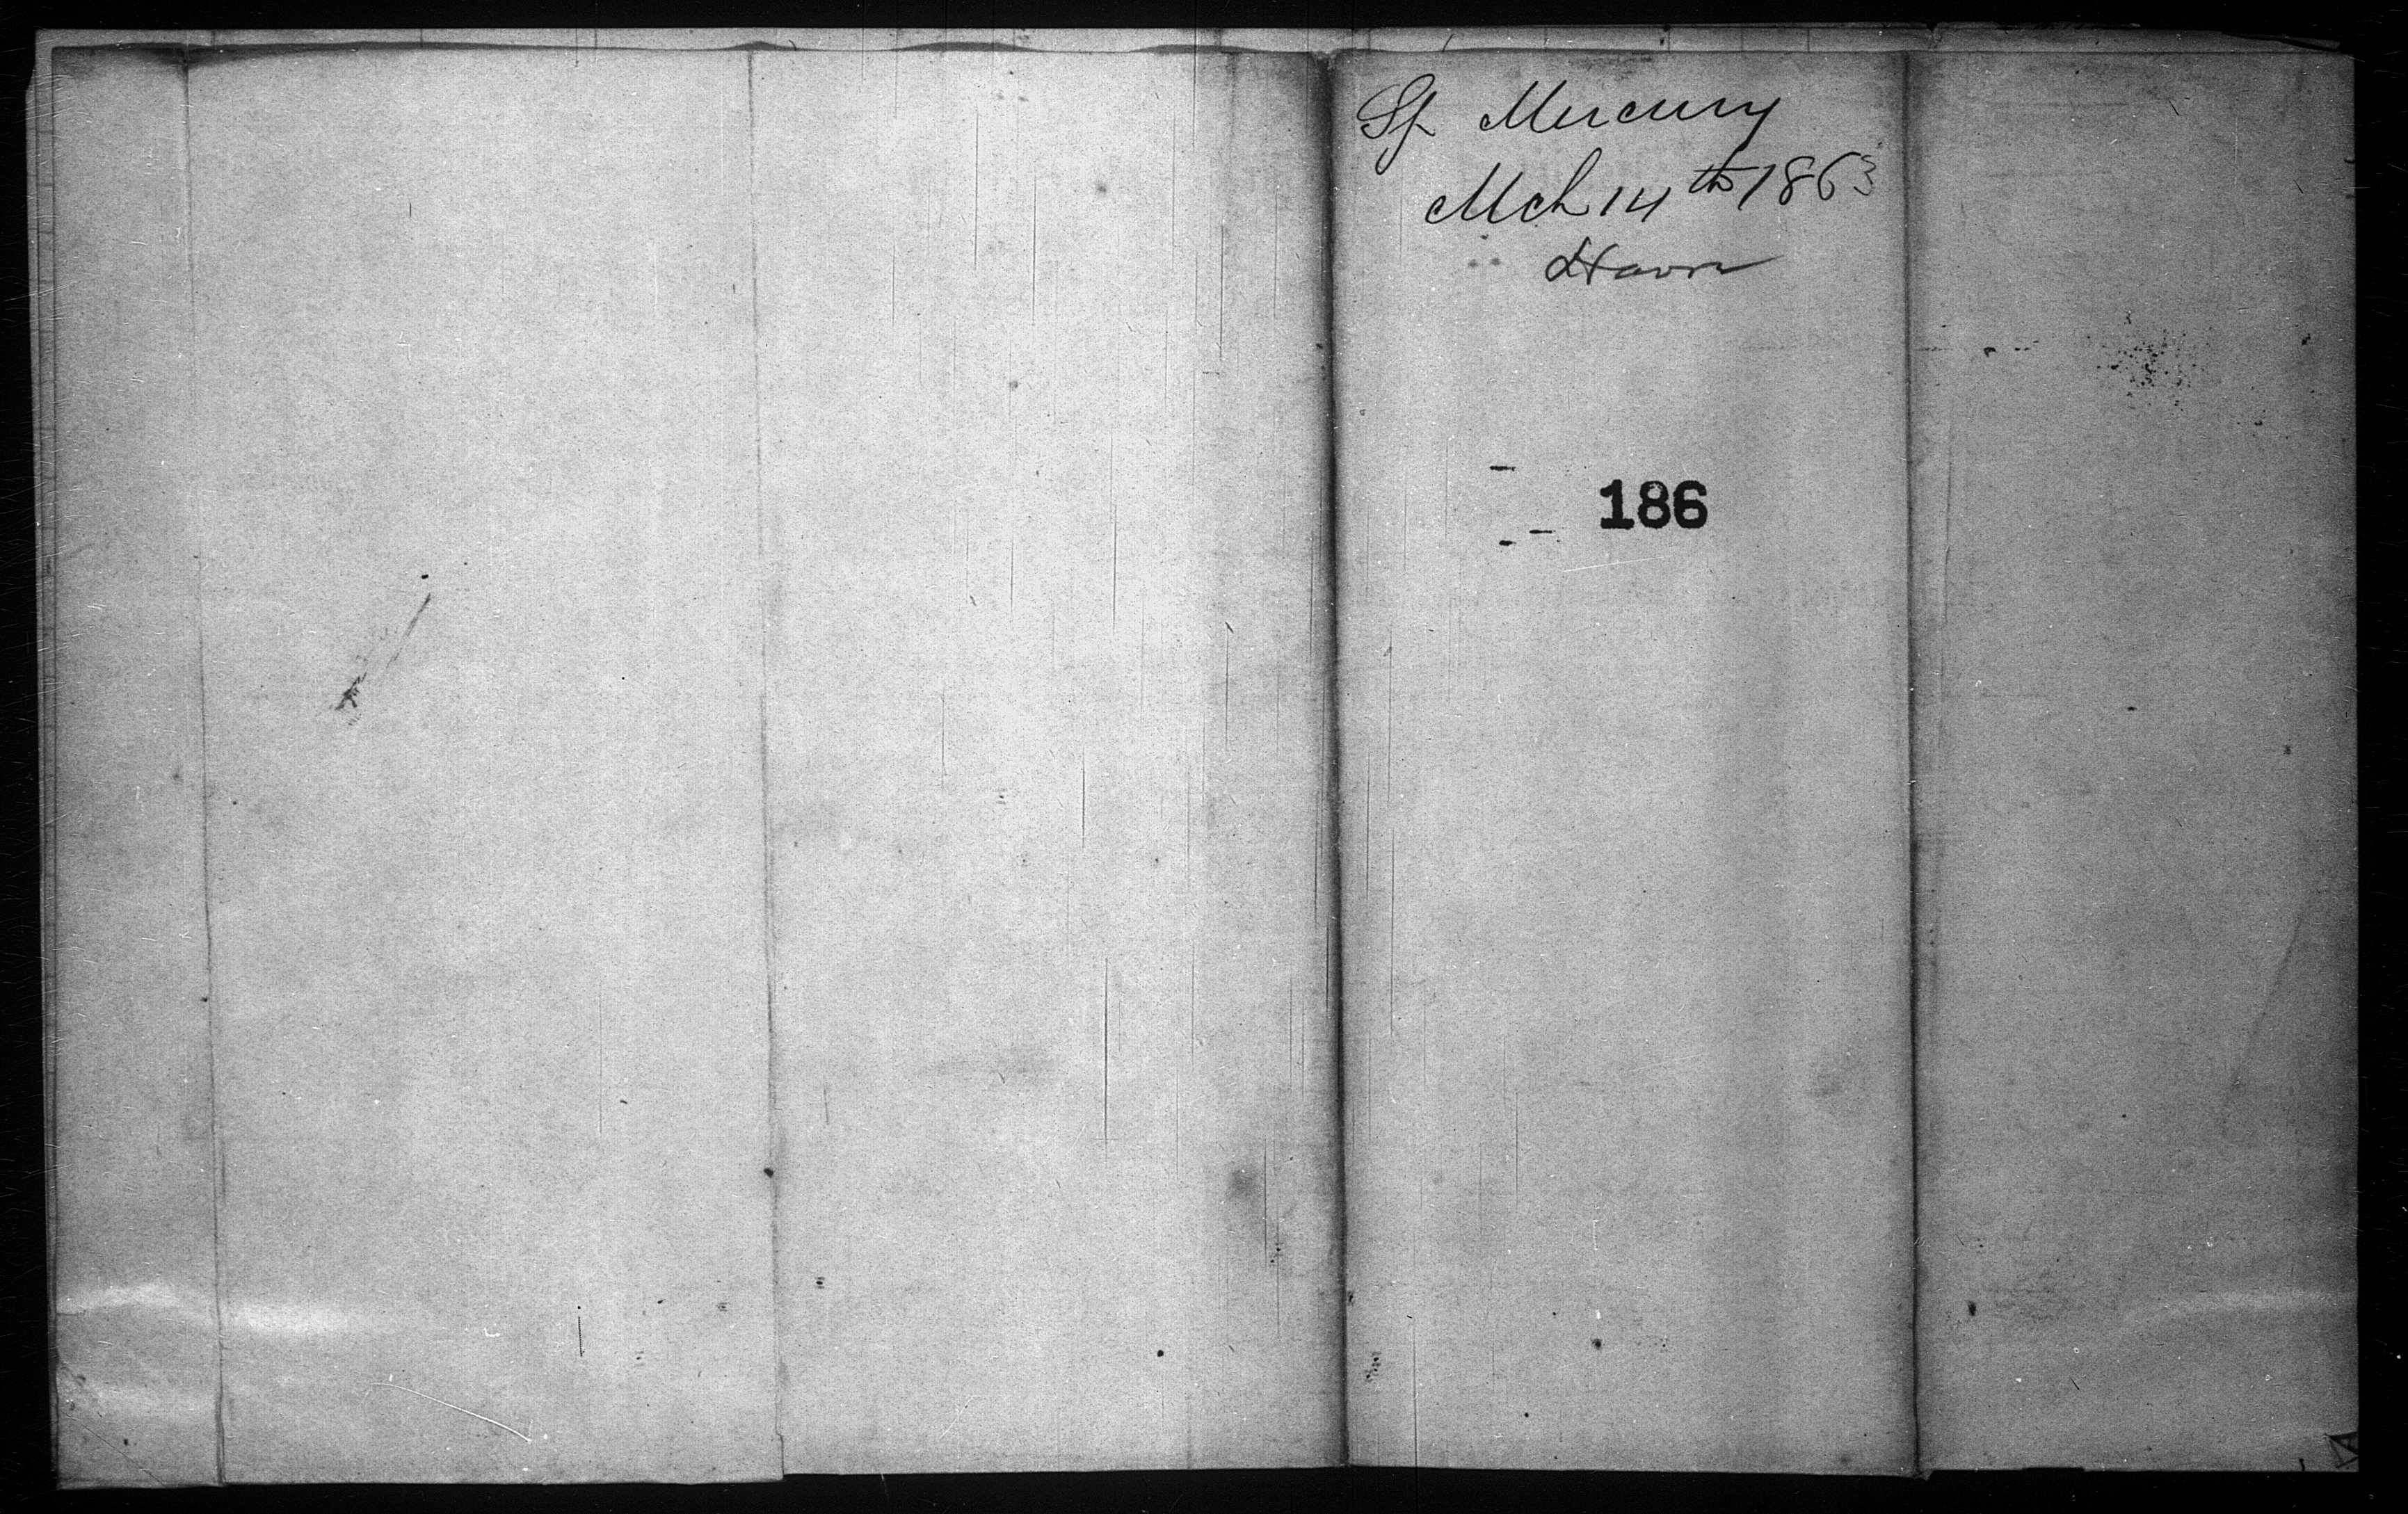 Sp Mercury
Mch 14th 1863
Havre
186